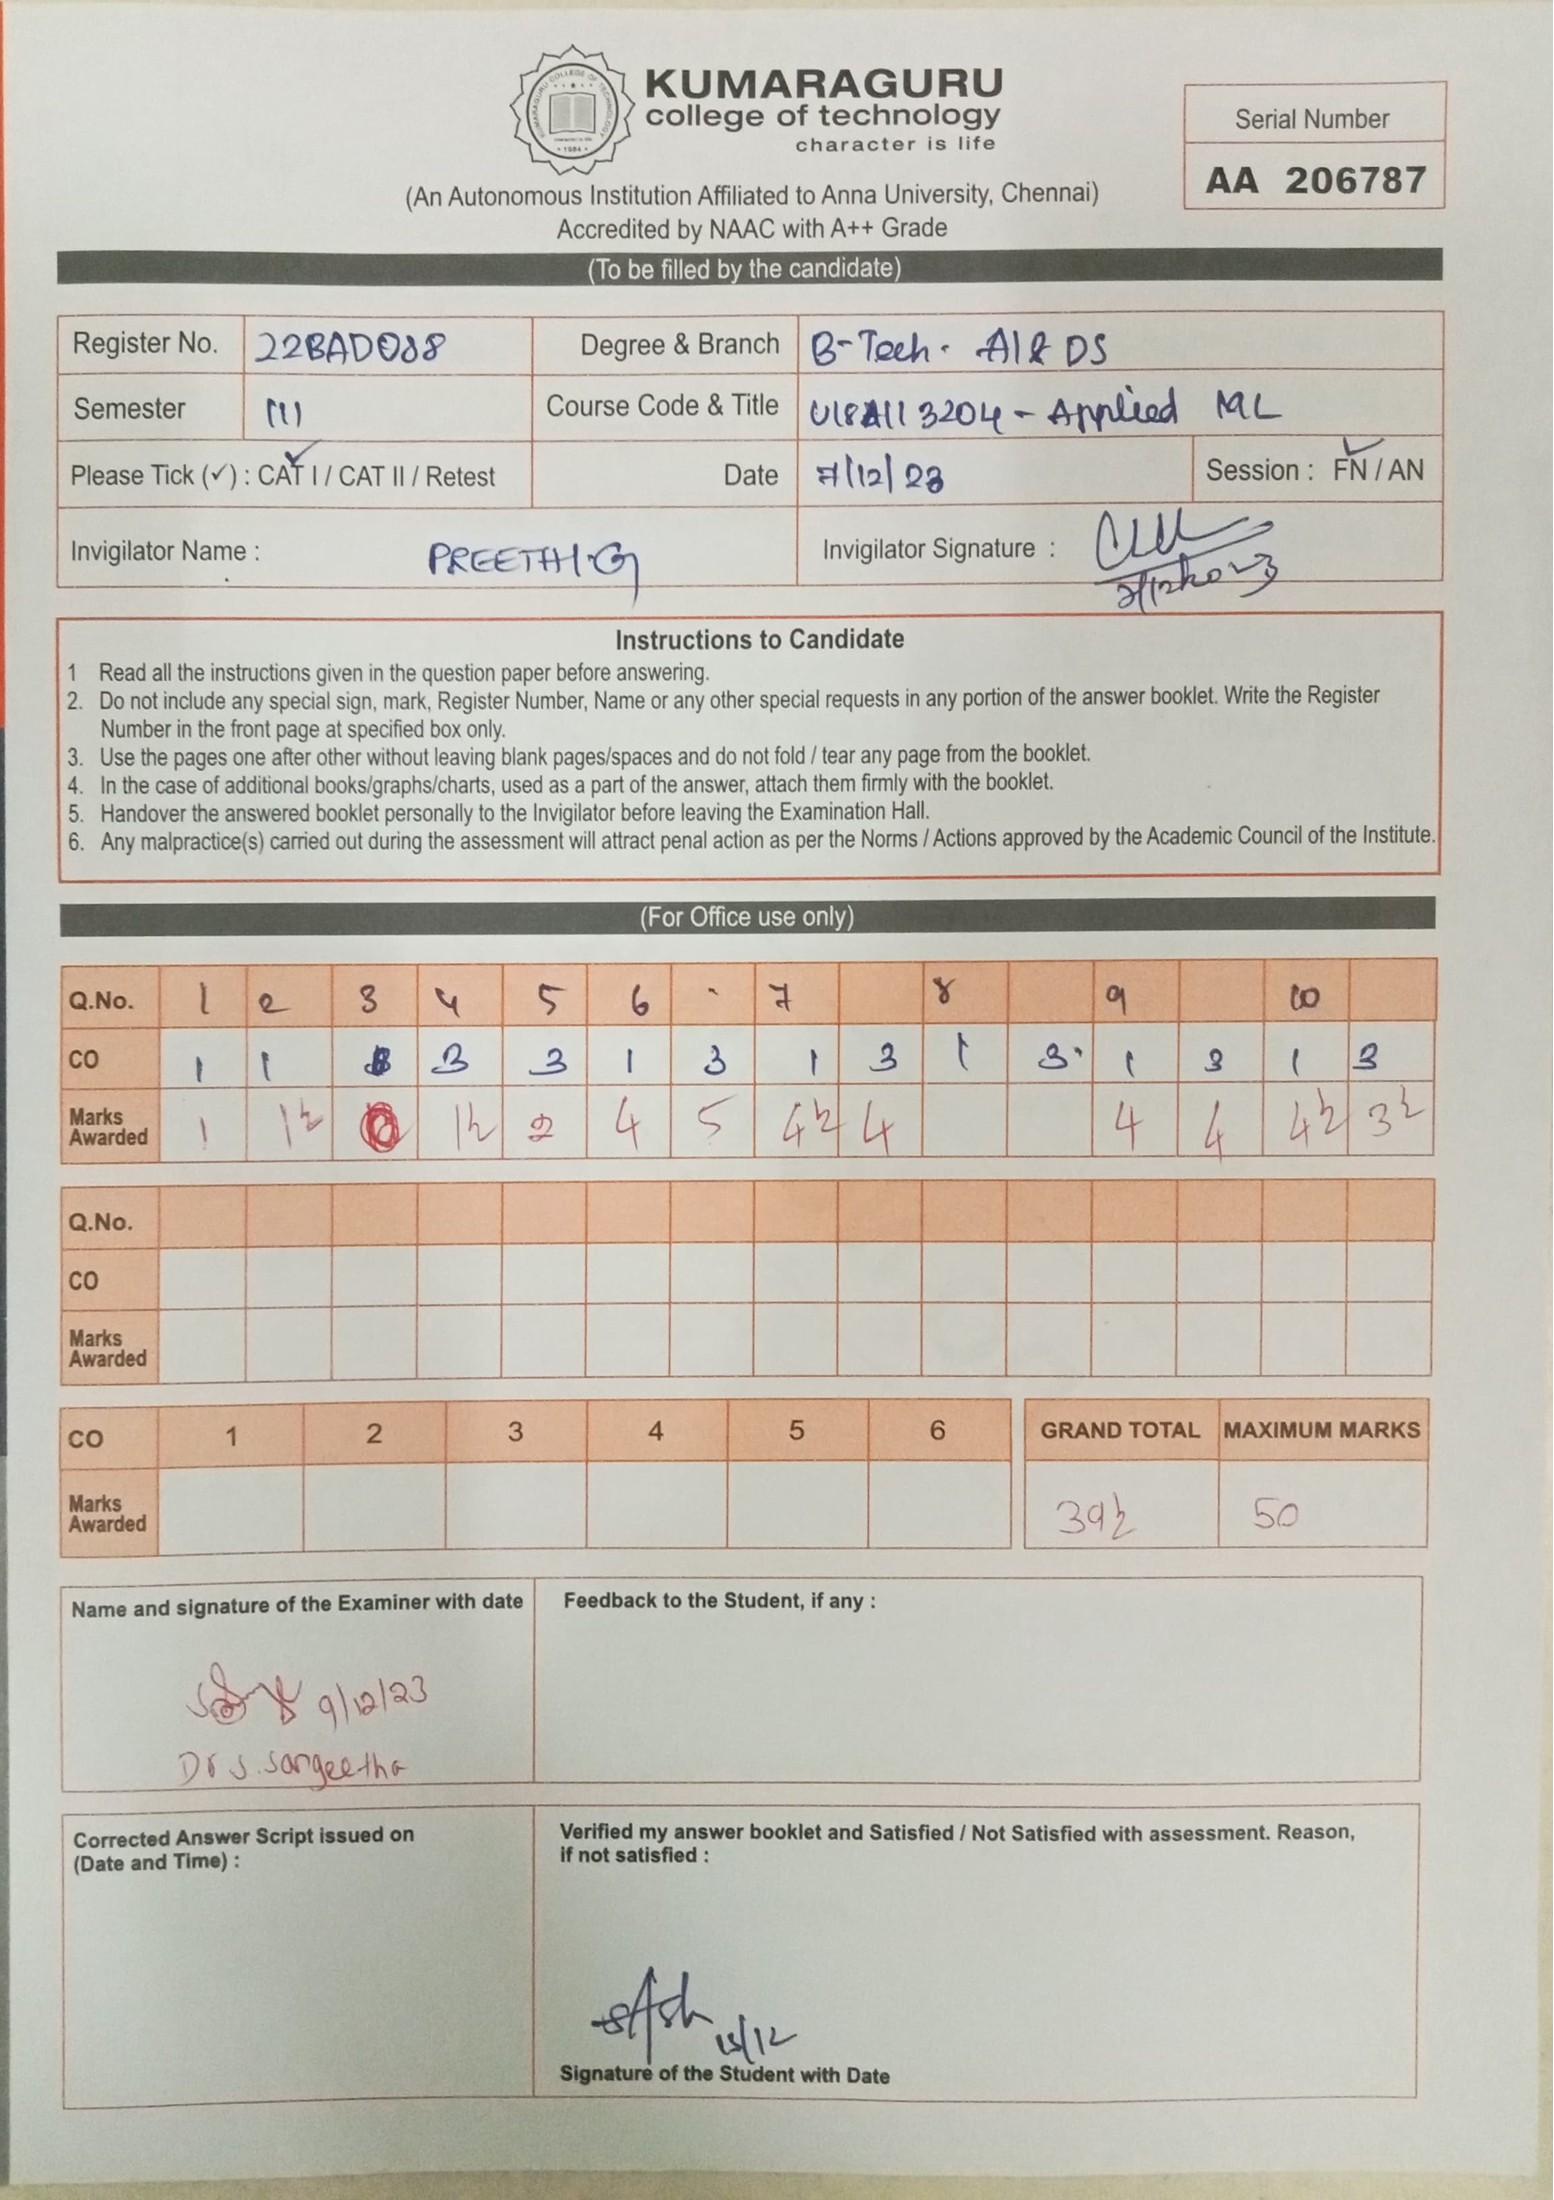 KUMARAGURU
college of technology
character is life
(An Autonomous Institution Affiliated to Anna University, Chennai)
Accredited by NAAC with A++ Grade
Serial Number
AA 206787
(To be filled by the candidate)
Register No. 22BAD088 Degree & Branch B-Tech. AI & DS
Semester III Course Code & Title U18AII3204 - Applied ML
Please Tick (✓) : CAT I / CAT II / Retest Date 7/12/23 Session : FN / AN
Invigilator Name : PREETHI.G Invigilator Signature :
Instructions to Candidate
1 Read all the instructions given in the question paper before answering.
2. Do not include any special sign, mark, Register Number, Name or any other special requests in any portion of the answer booklet. Write the Register
Number in the front page at specified box only.
3. Use the pages one after other without leaving blank pages/spaces and do not fold / tear any page from the booklet.
4. In the case of additional books/graphs/charts, used as a part of the answer, attach them firmly with the booklet.
5. Handover the answered booklet personally to the Invigilator before leaving the Examination Hall.
6. Any malpractice(s) carried out during the assessment will attract penal action as per the Norms / Actions approved by the Academic Council of the Institute.
(For Office use only)
Q.No. 1 2 3 4 5 6 7 8 9 10
CO 1 1 3 3 1 3 1 3 1 3 1 3 1 3
Marks
Awarded 1 1½ 0 1½ 2 4 5 4½ 4 4 4 4½ 3½
Q.No.
CO
Marks
Awarded
CO 1 2 3 4 5 6 GRAND TOTAL MAXIMUM MARKS
Marks
Awarded 39½ 50
Name and signature of the Examiner with date
9/12/23
Dr S. Sangeetha
Feedback to the Student, if any :
Corrected Answer Script issued on
(Date and Time) :
Verified my answer booklet and Satisfied / Not Satisfied with assessment. Reason,
if not satisfied :
Signature of the Student with Date